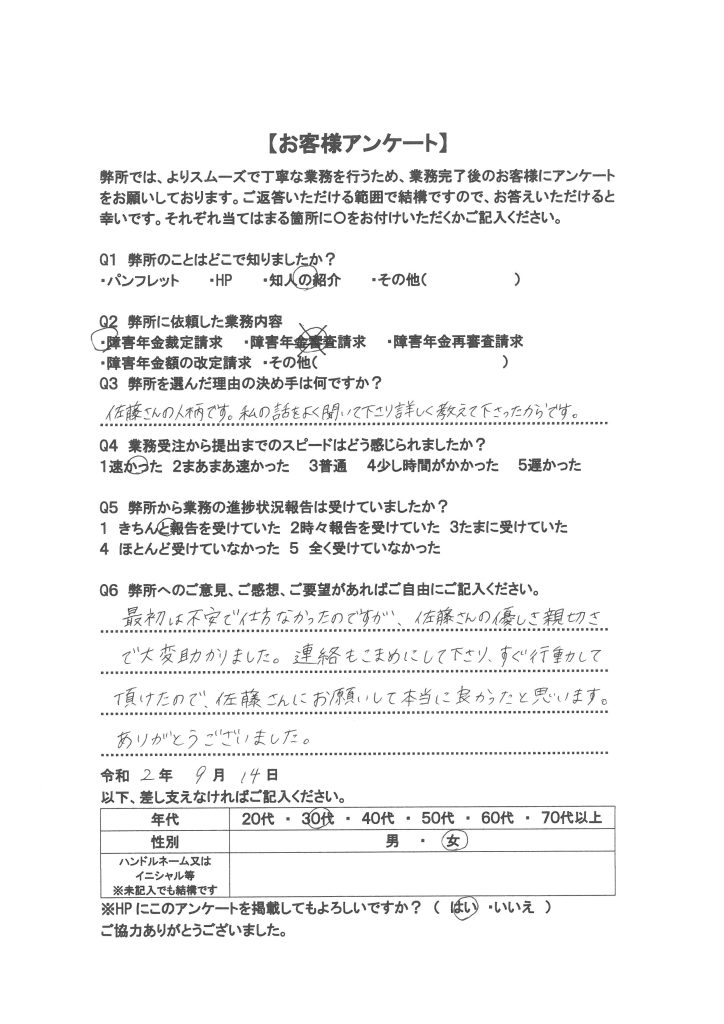 【お客様アンケート】
弊所では、よりスムーズで丁寧な業務を行うため、業務完了後のお客様にアンケート
をお願いしております。ご返答いただける範囲で結構ですので、お答えいただけると
幸いです。それぞれ当てはまる箇所に〇をお付けいただくかご記入ください。
Q1 弊所のことはどこで知りましたか？
・パンフレット ・HP ・知人の紹介 ・その他( )
Q2 弊所に依頼した業務内容
・障害年金裁定請求 ・障害年金審査請求 ・障害年金再審査請求
・障害年金額の改定請求 ・その他( )
Q3 弊所を選んだ理由の決め手は何ですか？
佐藤さんの人柄です。私の話をよく聞いて下さり詳しく教えて下さったからです。
Q4 業務受注から提出までのスピードはどう感じられましたか？
1速かった 2まあまあ速かった 3普通 4少し時間がかかった 5遅かった
Q5 弊所から業務の進捗状況報告は受けていましたか？
1 きちんと報告を受けていた 2時々報告を受けていた 3たまに受けていた
4 ほとんど受けていなかった 5 全く受けていなかった
Q6 弊所へのご意見、ご感想、ご要望があればご自由にご記入ください。
最初は不安で仕方なかったのですが、佐藤さんの優しさ親切さ
で大変助かりました。連絡もこまめにして下さり、すぐ行動して
頂けたので、佐藤さんにお願いして本当に良かったと思います。
ありがとうございました。
令和 2 年 9 月 14 日
以下、差し支えなければご記入ください。
年代 20代 ・ 30代 ・ 40代 ・ 50代 ・ 60代 ・ 70代以上
性別 男 ・ 女
ハンドルネーム又は
イニシャル等
※未記入でも結構です
※HPにこのアンケートを掲載してもよろしいですか？ ( はい ・いいえ )
ご協力ありがとうございました。